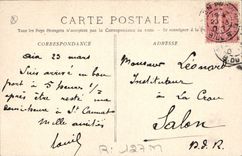 CARTE POSTALE
Tous les Pays étrangers n'acceptent pas la Correspondance au recto
CORRESPONDANCE
ADRESSE
Aix 23 mars
Suis arrivé en bon
port à 5 heures 1/2
après être resté une
demi-heure à St Chamas
Mille amitiés
Louis
Monsieur Léonard
Instituteur
à La Crau
Salon
B.D.R.
R: 127M